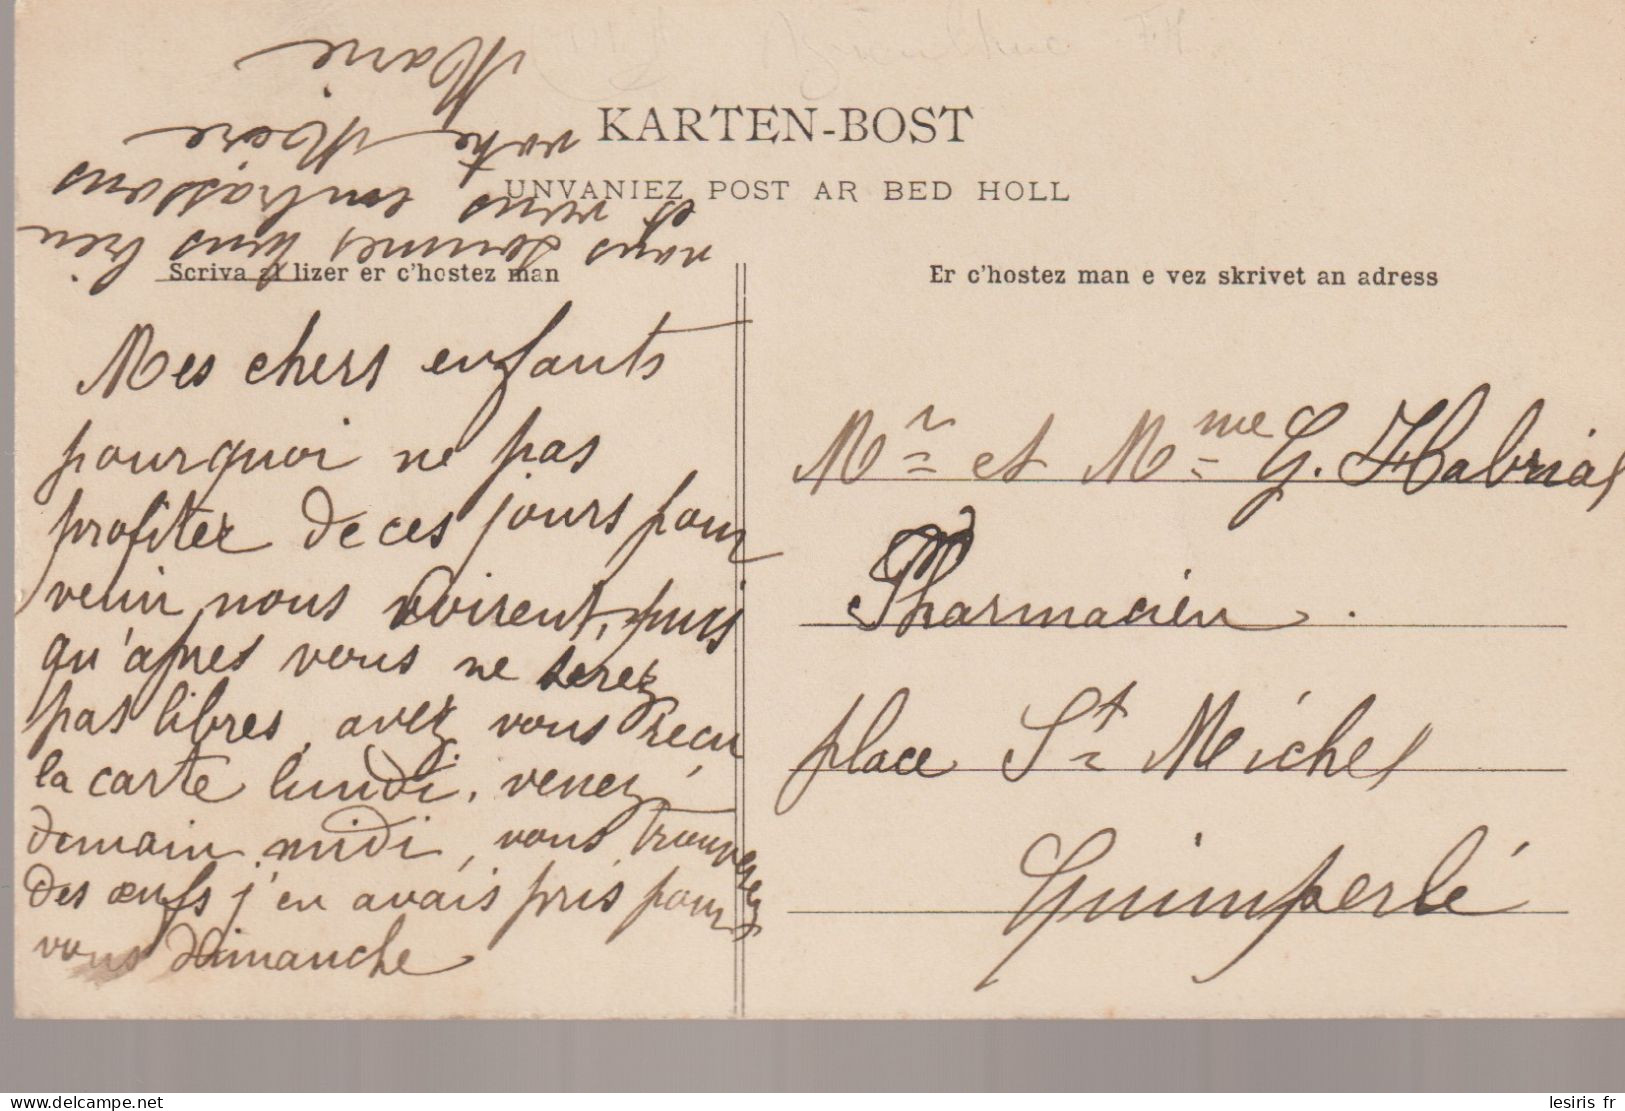 KARTEN-BOST
UNVANIEZ POST AR BED HOLL
Scriva al lizer er c'hostez man
Er c'hostez man e vez skrivet an adress
Mes chers enfants
pourquoi ne pas
profiter de ces jours pour
venir nous voirent, puis
qu'apres vous ne serez
pas libres, avez vous recu
la carte lundi, venez
demain midi, vous trouverez
des œufs j'en avais pris pour
vous dimanche
nous sommes tous bien
et vous embrassons
votre Mère
Marie
Mr et Mme G. Habrial
Pharmacien.
place St Michel
Quimperlé
lesiris fr